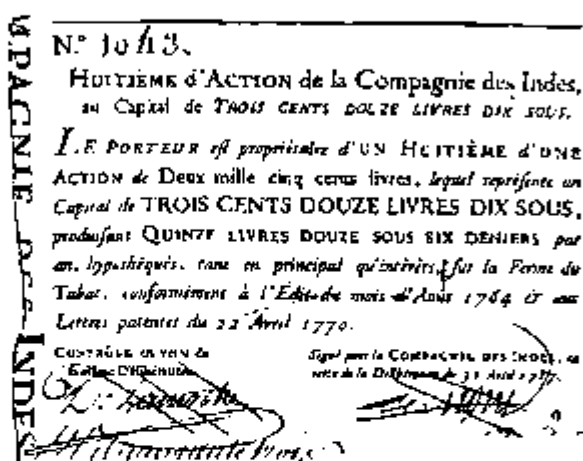 N.º 1013.
HUITIÈME d'ACTION de la Compagnie des Indes,
au Capital de TROIS CENTS DOUZE LIVRES DIX SOUS.
LE PORTEUR est propriétaire d'UN HUITIÈME d'UNE
ACTION de Deux mille cinq cents livres, lequel représente un
Capital de TROIS CENTS DOUZE LIVRES DIX SOUS,
produisant QUINZE LIVRES DOUZE SOUS SIX DENIERS par
an, hypothéqués, tant en principal qu'intérêts, sur la Ferme du
Tabac, conformément à l'Édit du mois d'Août 1764 & aux
Lettres patentes du 22 Avril 1770.
CONTRÔLÉ en vertu de
Signé pour la COMPAGNIE DES INDES, en
vertu de la Délibération du
PAGNIE DES INDES